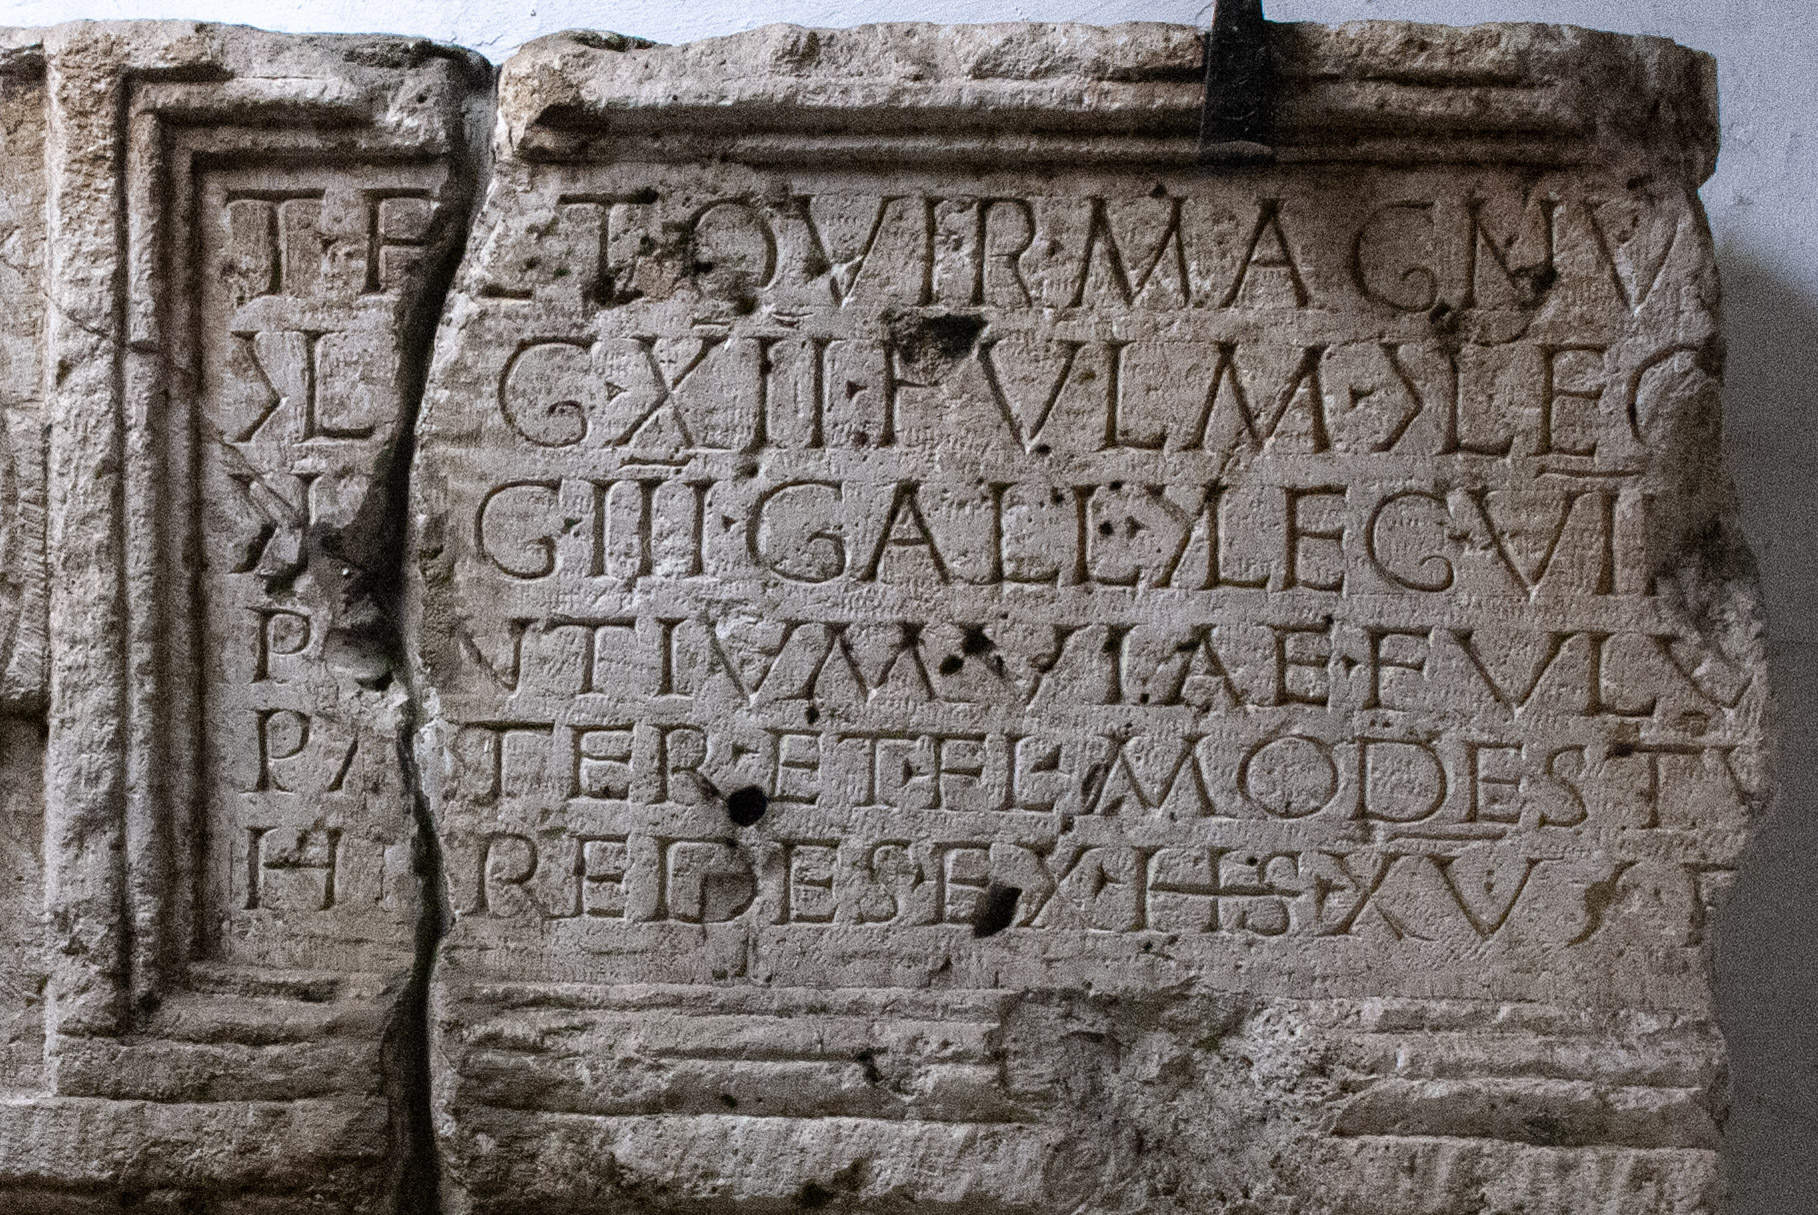 T·F L·TO QVIR MAGNV
Ɔ LEG·XII·FVLM·Ɔ LEG
Ɔ LEG·III·GALL·Ɔ LEG VII
P NTIVM·VLAE·FVLV
PATER·ET·FL·MODESTV
HEREDES EX·HS·XV ST